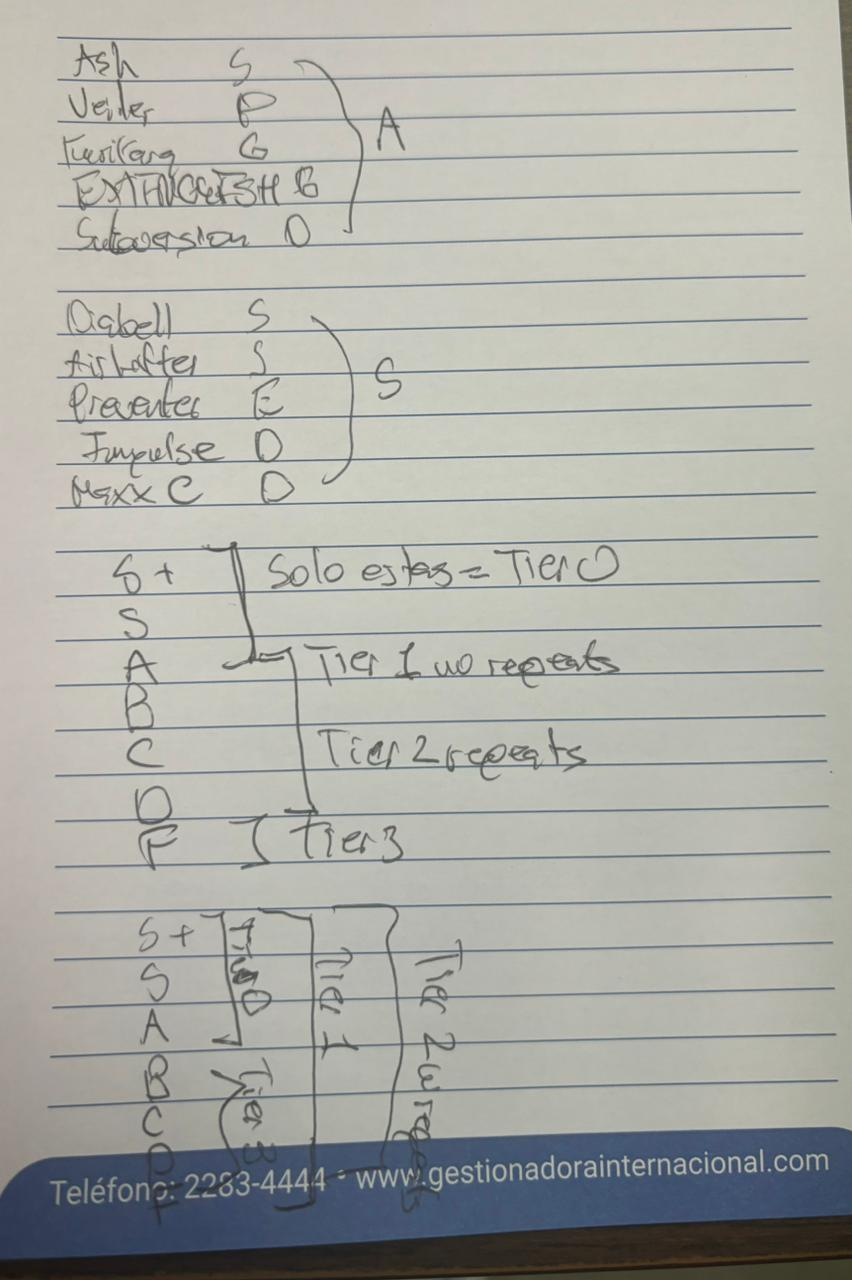 Ash S
Veiler P
G
EXTINGUISH G
Subversion D
A
Diabell S
Airlifter S
Preventer E
Impulse D
Maxx C D
S
S+
S
A
B
C
D
F
Solo estas = Tier 0
Tier 1 no repeats
Tier 2 repeats
Tier 3
S+
S
A
B
C
D
F
Tier 0
Tier 3
Tier 1
Tier 2 w repeats
Teléfono: 2283-4444 - www.gestionadorainternacional.com